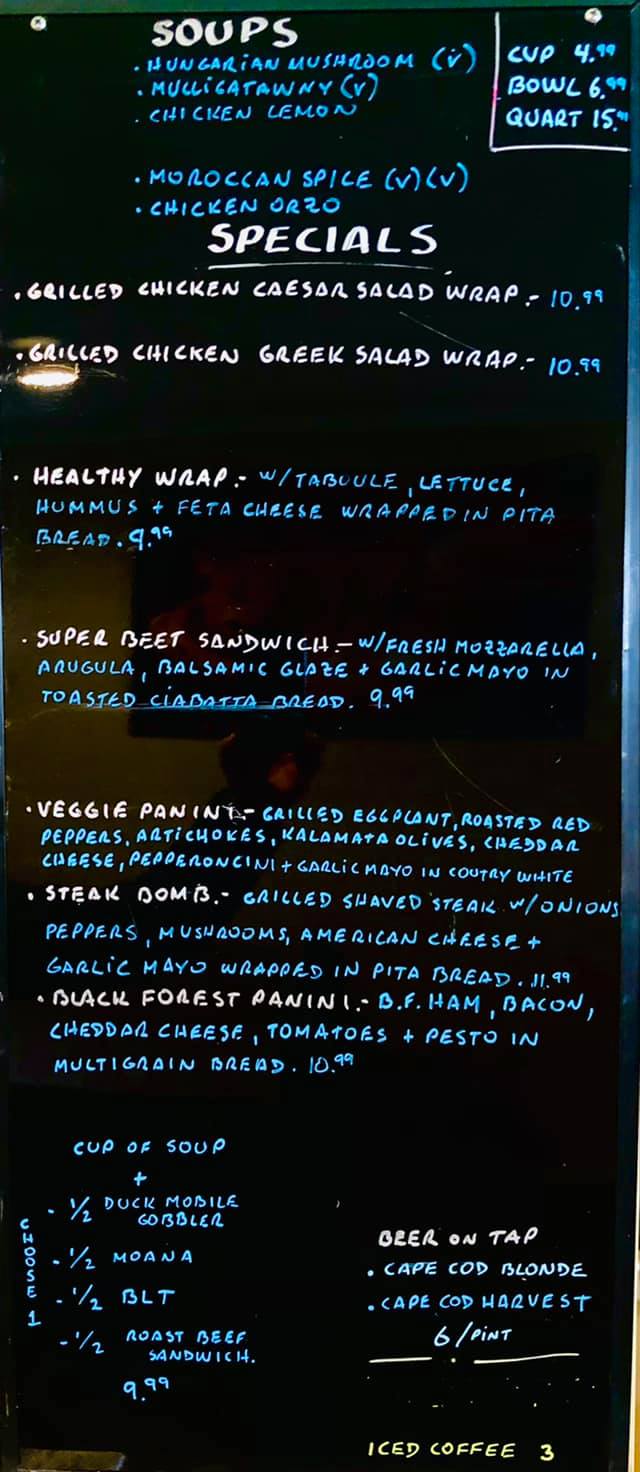 SOUPS
. HUNGARIAN MUSHROOM (v)
. MULLIGATAWNY (v)
. CHICKEN LEMON
CUP 4.99
BOWL 6.99
QUART 15.99
. MOROCCAN SPICE (v)(v)
. CHICKEN ORZO
SPECIALS
. GRILLED CHICKEN CAESAR SALAD WRAP.- 10.99
. GRILLED CHICKEN GREEK SALAD WRAP.- 10.99
. HEALTHY WRAP.- W/TABOULE, LETTUCE,
HUMMUS + FETA CHEESE WRAPPED IN PITA
BREAD. 9.99
. SUPER BEET SANDWICH.- W/FRESH MOZZARELLA,
ARUGULA, BALSAMIC GLAZE + GARLIC MAYO IN
TOASTED CIABATTA BREAD. 9.99
. VEGGIE PANINI.- GRILLED EGGPLANT, ROASTED RED
PEPPERS, ARTICHOKES, KALAMATA OLIVES, CHEDDAR
CHEESE, PEPPERONCINI + GARLIC MAYO IN COUTRY WHITE
. STEAK BOMB.- GRILLED SHAVED STEAK W/ONIONS
PEPPERS, MUSHROOMS, AMERICAN CHEESE +
GARLIC MAYO WRAPPED IN PITA BREAD. 11.99
. BLACK FOREST PANINI.- B.F. HAM, BACON,
CHEDDAR CHEESE, TOMATOES + PESTO IN
MULTIGRAIN BREAD. 10.99
CUP OF SOUP
+
CHOOSE 1
- 1/2 DUCK MOBILE
GOBBLER
- 1/2 MOANA
- 1/2 BLT
- 1/2 ROAST BEEF
SANDWICH.
9.99
BEER ON TAP
. CAPE COD BLONDE
. CAPE COD HARVEST
6/PINT
ICED COFFEE 3